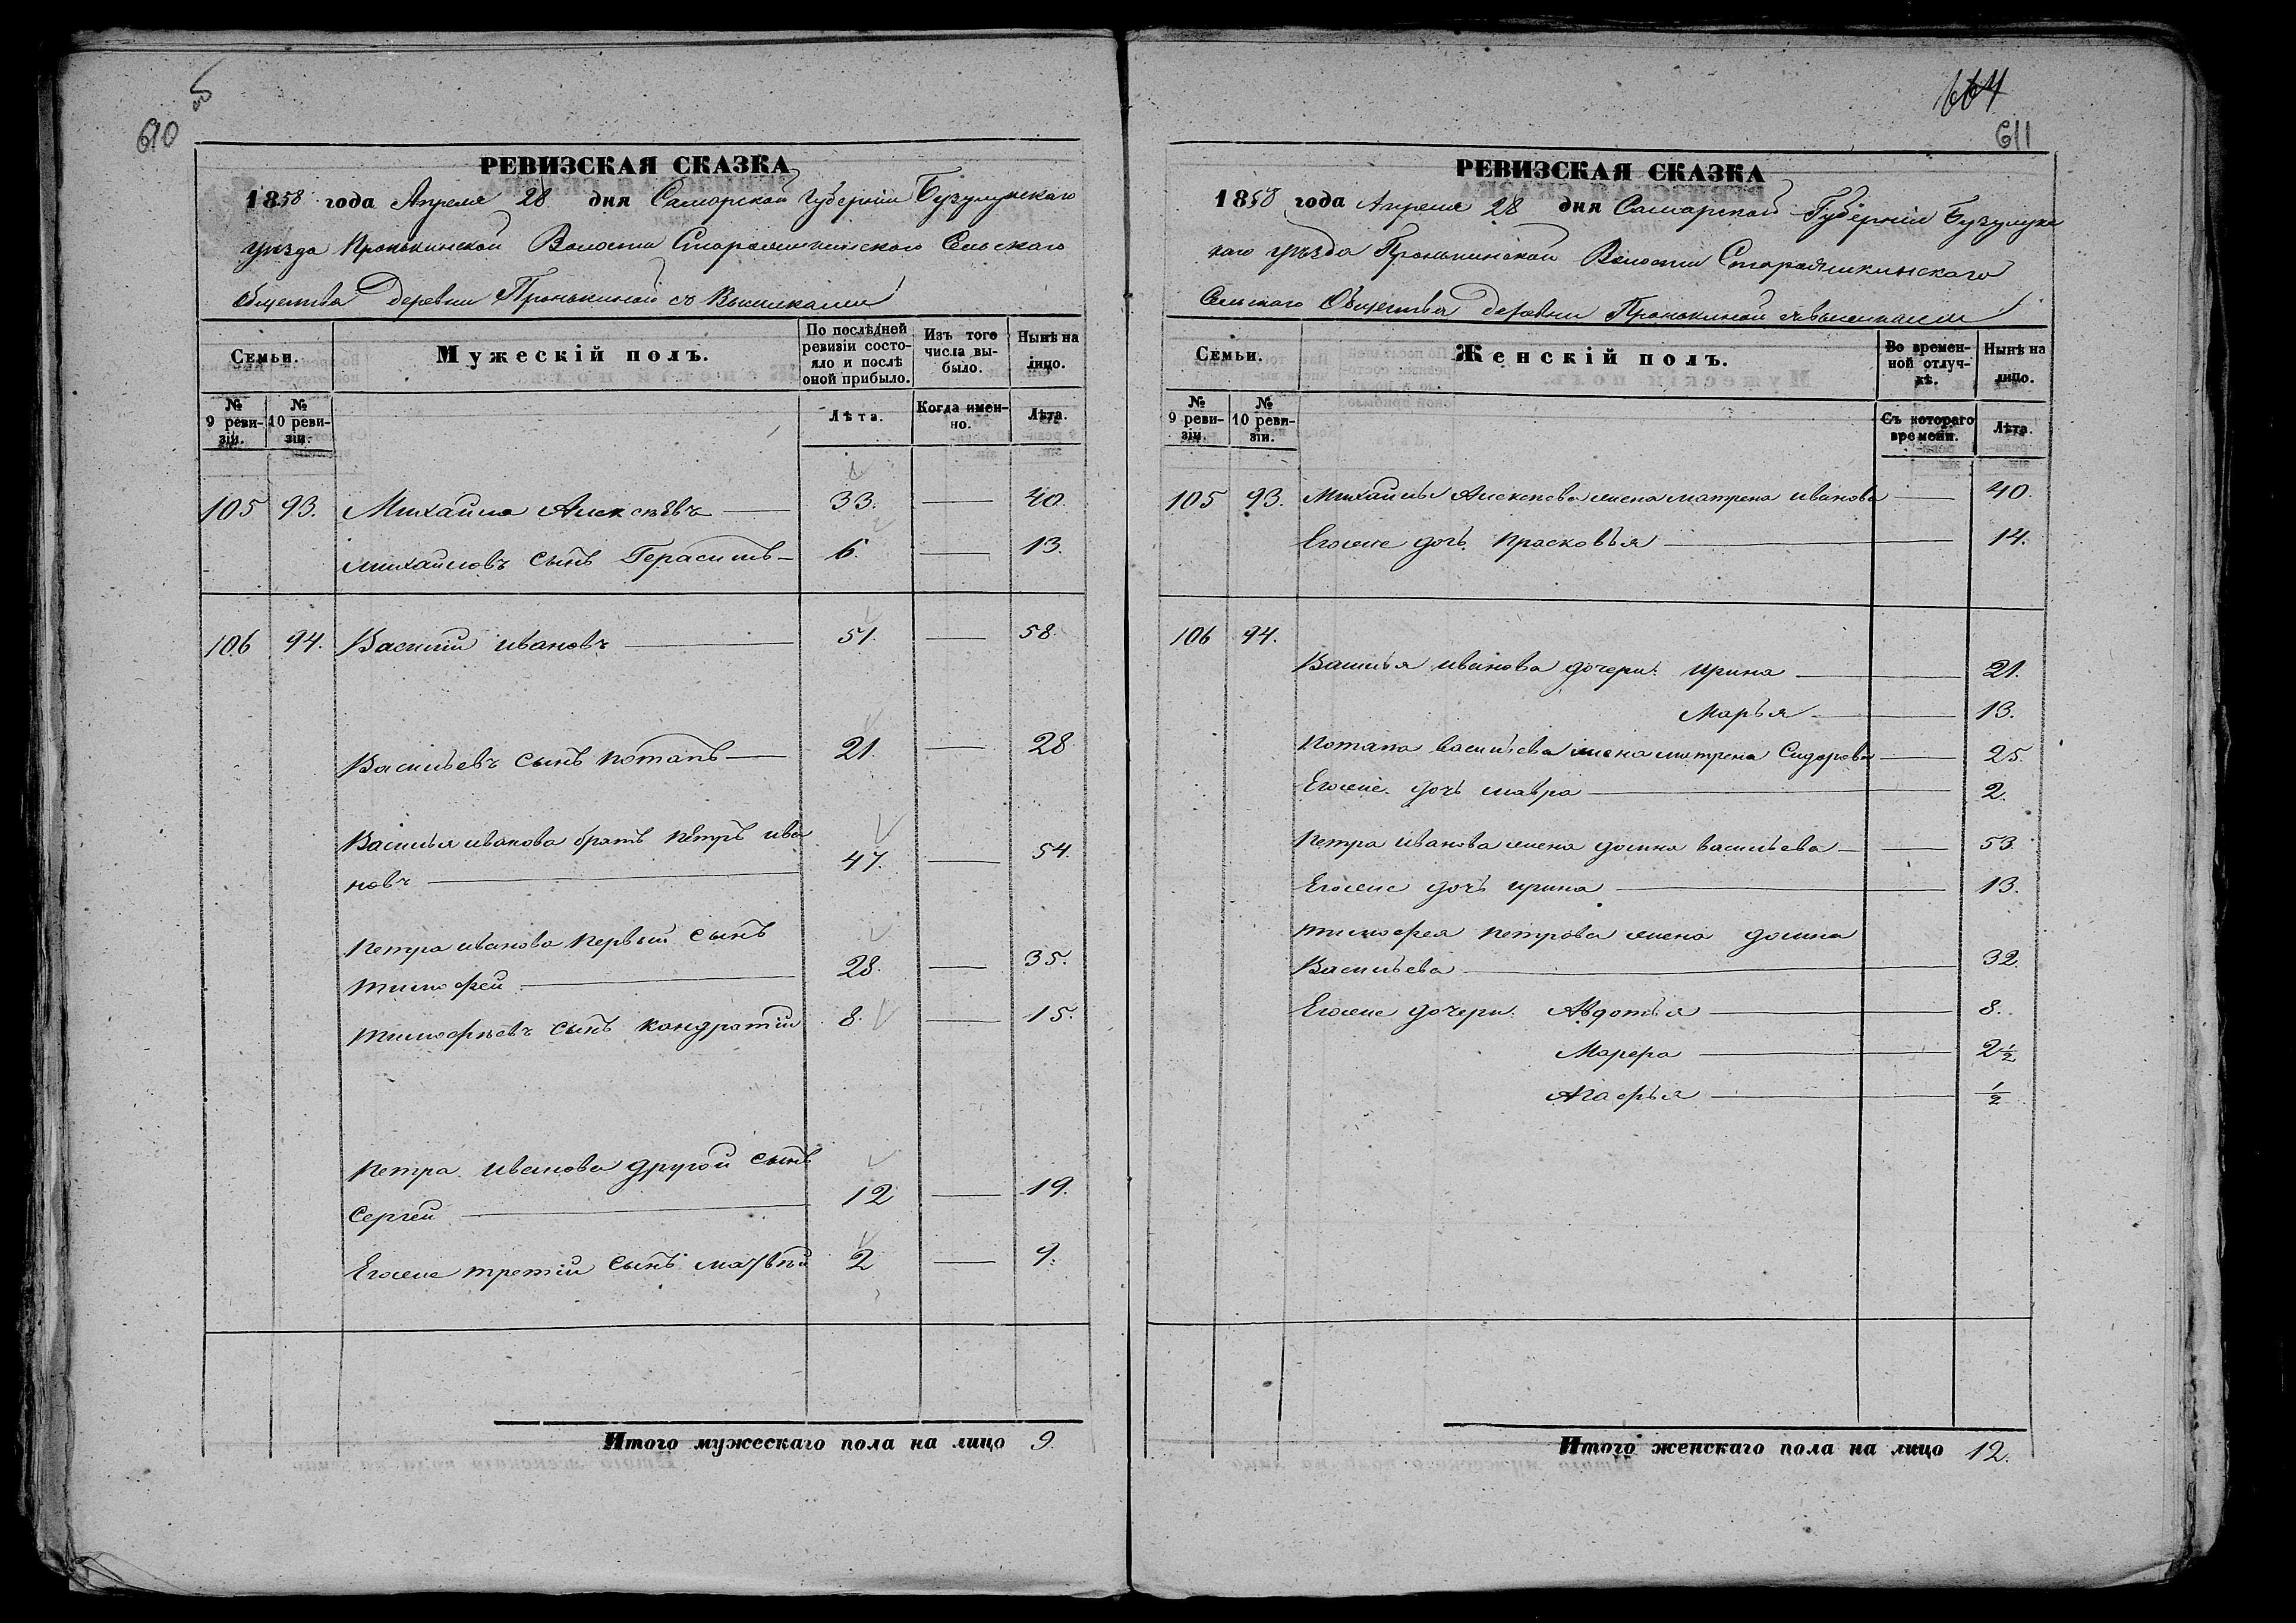 610
РЕВИЗСКАЯ СКАЗКА
1858 года Апреля 28 дня Самарской Губерніи Бузулукскаго
уезда Пронькинской Волости Сельскаго
общества Деревни Пронькиной съ Выселками
Семьи. Мужескій полъ. По послѣдней ревизіи состояло и послѣ оной прибыло. Изъ того числа выбыло. Нынѣ на лицо.
№ 9 ревизіи. № 10 ревизіи. Лѣта. Когда именно. Лѣта.
105 93. Михайла Алексѣевъ 33. 40.
Михайловъ сынъ Герасимъ 6. 13.
106 94. Василій Ивановъ 51. 58.
Васильевъ сынъ Потапъ 21. 28
Василья Иванова братъ Петръ Ива
новъ 47. 54.
Петра Иванова первый сынъ
Тимофей 28. 35.
Тимофеевъ сынъ Кондратій 8. 15.
Петра Иванова другой сынъ
Сергей 12 19.
Егоже третій сынъ Матвѣй 2 9.
Итого мужескаго пола на лицо 9.
664
611
РЕВИЗСКАЯ СКАЗКА
1858 года Апреля 28 дня Самарской Губерніи Бузулукс
каго уезда Пронькинской Волости
Сельскаго Общества деревни Пронькиной съ выселками
Семьи. Женскій полъ. Во временной отлучкѣ. Нынѣ на лицо.
№ 9 ревизіи. № 10 ревизіи. Съ котораго времени. Лѣта.
105 93. Михайлы Алексеева жена Матрена Иванова 40.
Егоже дочь Прасковья 14.
106 94.
Василья Иванова дочери: Ирина 21.
Марья 13.
Потапа Васильева жена Матрена Сидорова 25.
Егоже дочь Мавра 2.
Петра Иванова жена Домна Васильева 53.
Егоже дочь Ирина 13.
Тимофея Петрова жена Домна
Васильева 32.
Егоже дочери: Авдотья 8.
2 1/2
Агафья 1/2
Итого женскаго пола на лицо 12.